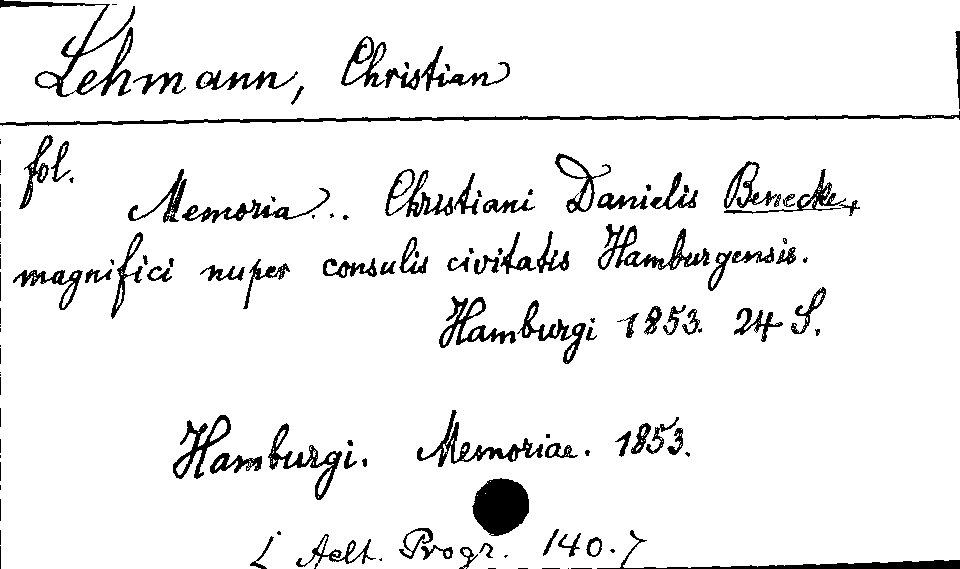 Lehmann, Christian
fol.
Memoria... Christiani Danielis Benecke,
magnifici nuper consulis civitatis Hamburgensis.
Hamburgi 1853. 24 S.
Hamburgi. Memoriae. 1853.
Aelt. Progr. 140.7